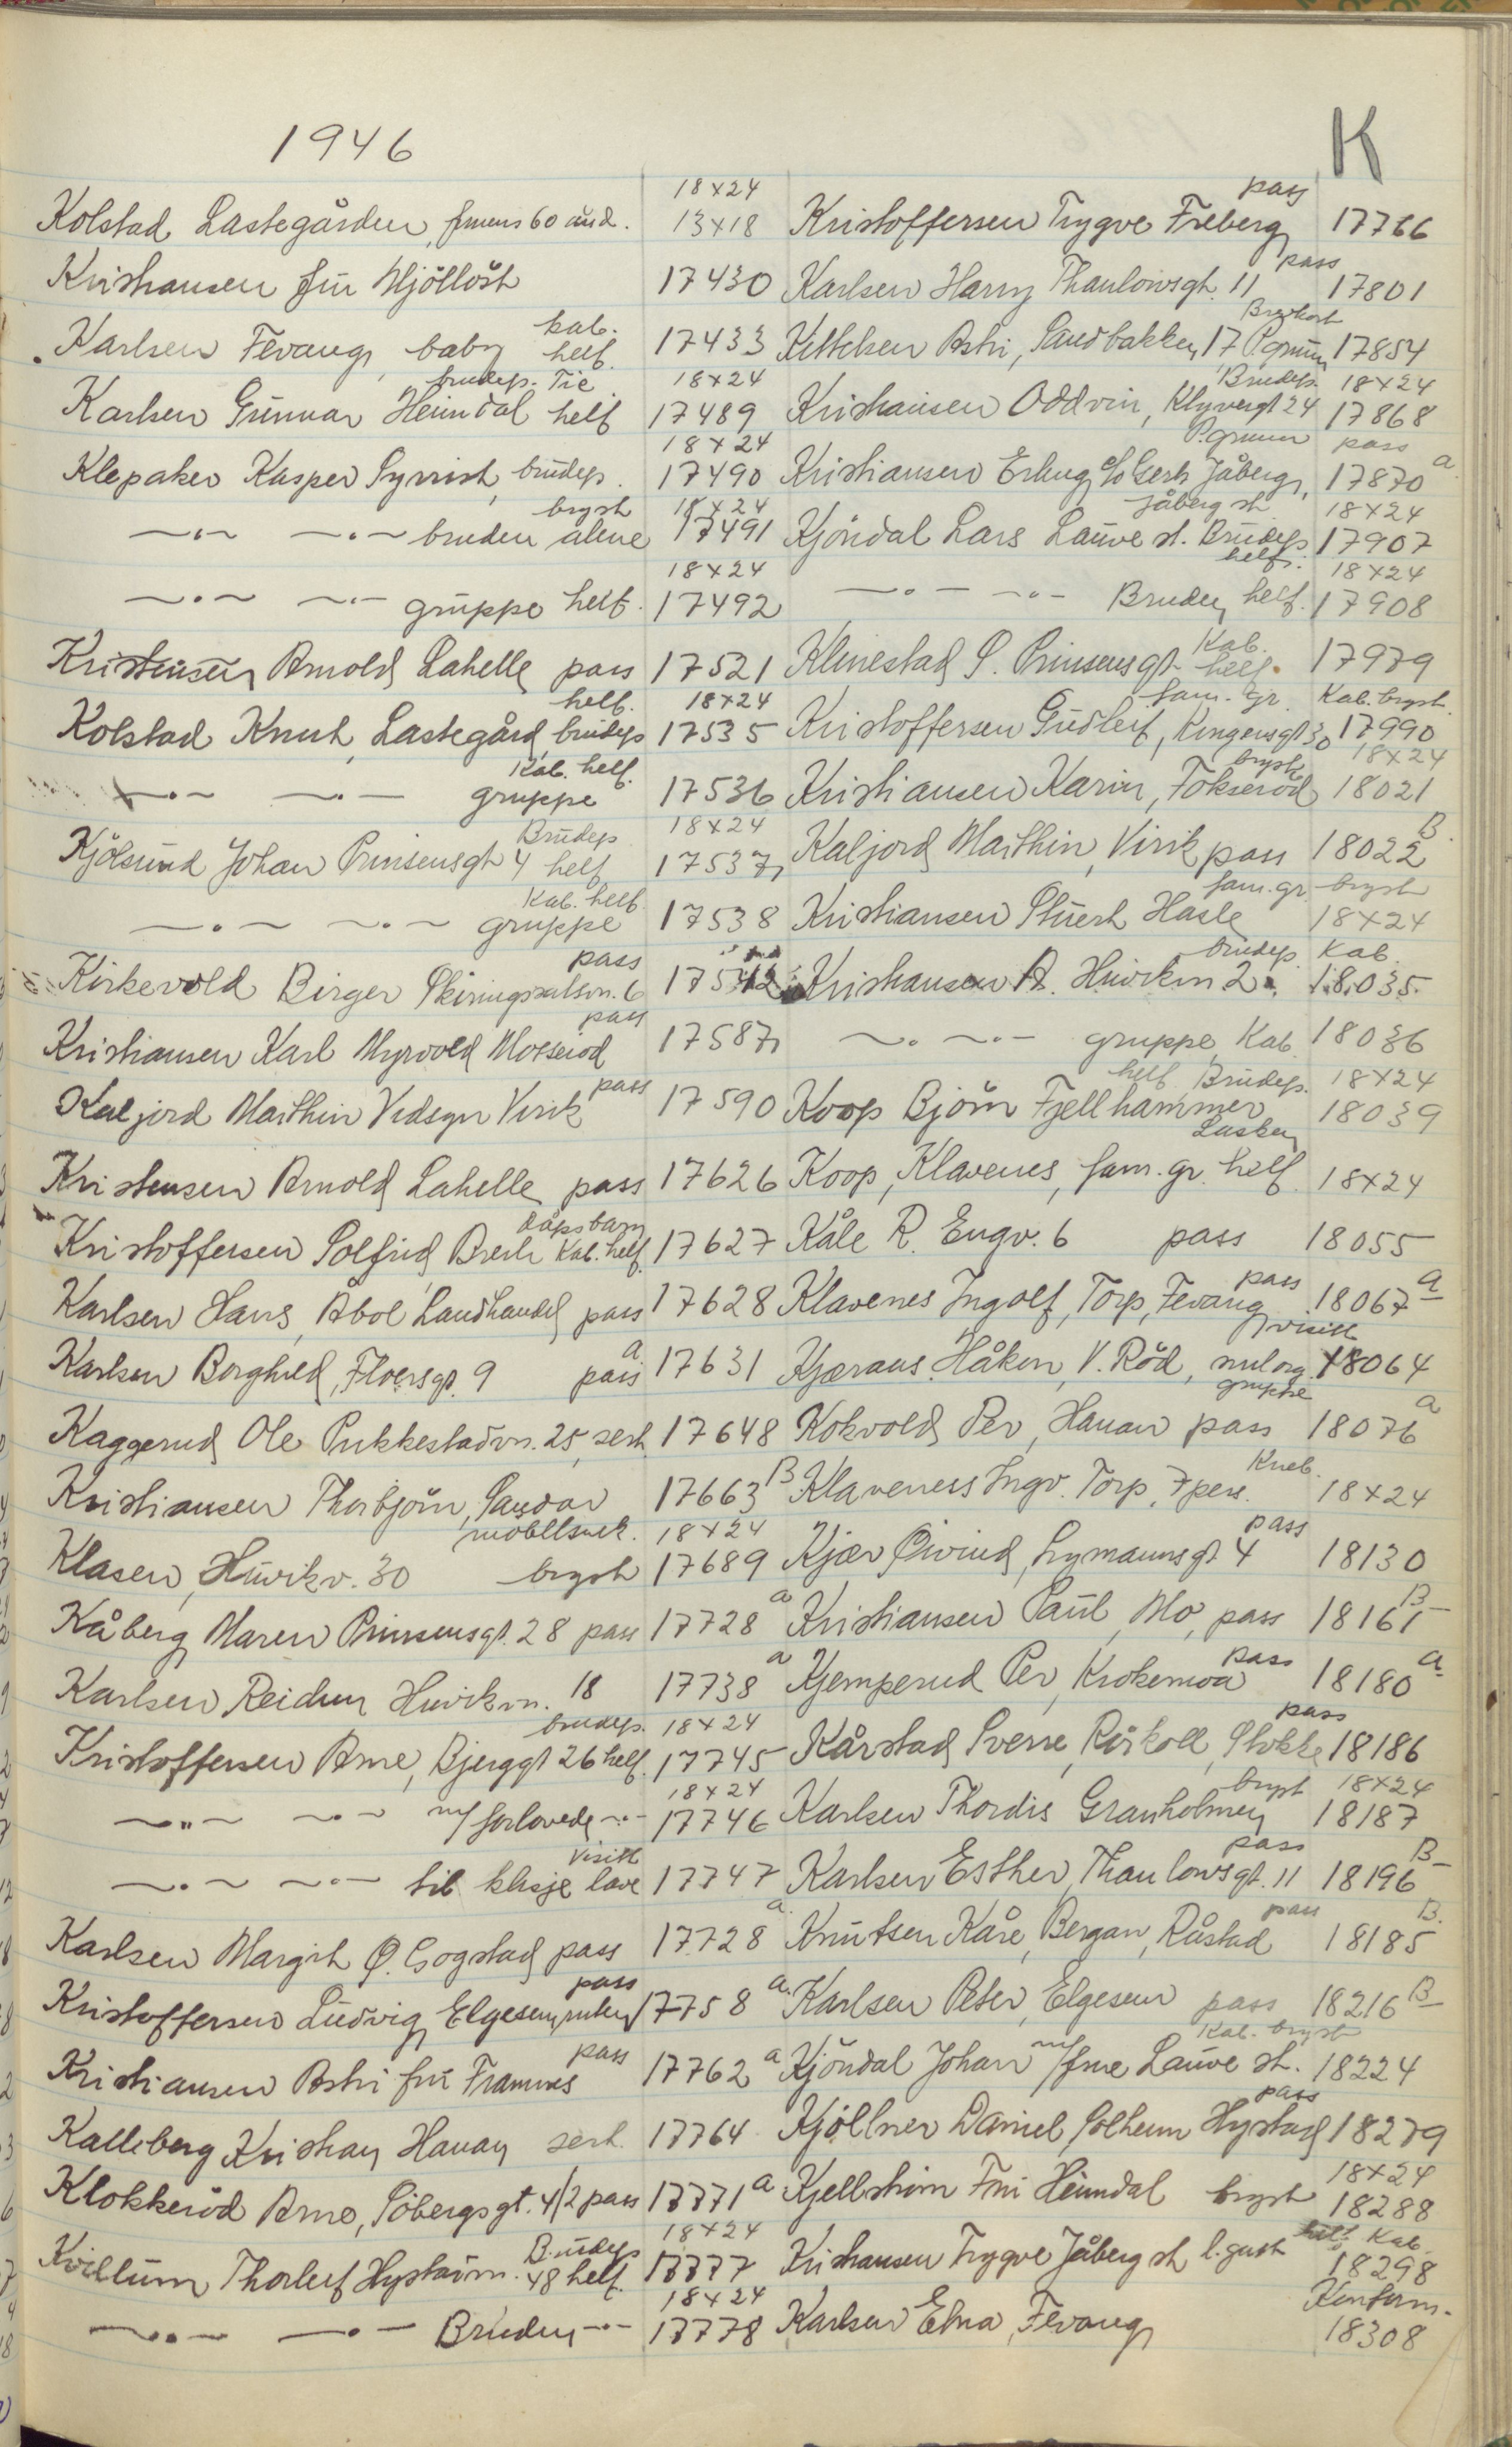 1946
K
18x24
Kolstad Lastegården, 60 års. 13x18
Kristiansen fru Mjölløst 17430
kab.
Karlsen Fevang, baby helf. 17433
brudep. Tie 18x24
Karlsen Gunnar Heimdal helf 17489
18x24
Klepaker Kasper Syrrist, brudep. 17490
bryst 18x24
—·— —·— bruden alene 17491
18x24
—·— —·— gruppe helf. 17492
Kristensen Arnold Lahelle pass 17521
helf. 18x24
Kolstad Knut, Lastegård, brudep 17535
Kab. helf.
—·— —·— gruppe 17536
Brudep 18x24
Kjölsund Johan Prinsensgt 4 helf 17537
Kab. helf.
—·— —·— gruppe 17538
pass
Kirkevold Birger Skiringssalsvn. 6 17542
pass
Kristiansen Karl Myrvold Moserød 17587
pass
Kaljord Marthin Vidsyn Virik 17590
Kristensen Arnold Lahelle pass 17626
dåpsbarn
Kristoffersen Solfrid Brek Kab. helf. 17627
Karlsen Hans, Åbol Landhandel pass 17628
a
Karlsen Borghild, Floersgt. 9 pass 17631
Kaggerud Ole Pukkestadvn. 25, sert. 17648
Kristiansen Thorbjörn, Sandar 17663 B
møbelsnek. 18x24
Klasen, Huvikv. 30 bryst 17689
Kåberg Maren Prinsensgt. 28 pass 17728 a
Karlsen Reidun Huvikvn. 18 17738 a
brudep. 18x24
Kristoffersen Arne, Bjerggt 26 helf. 17745
18x24
—··— —·— m/forlovede —·— 17746
Visitt
—·— —·— til klisje lave 17747
Karlsen Margit Ø. Gogstad pass 17728 a.
pass
Kristoffersen Ludvig Elgesem, 17758 a.
pass
Kristiansen Astri fru Framnes 17762 a
Kalleberg Kristian Hauan sert. 17764
Klokkeröd Arne, Söbergsgt. 4/2 pass 17771 a
Brudep 18x24
Kvillum Thorleif Hystadvn. 48 helf. 17777
18x24
—··— —·— Bruden —·— 17778
pass
Kristoffersen Trygve Freberg 17766
pass
Karlsen Harry Thaulowsgt. 11 17801
Brevkort
Kittelsen Astri, Sandbakken 17 P.grunn 17854
Brudep. 18x24
Kristiansen Oddvin, Klyvergt 24 17868
P.grunn pass
Kristiansen Erling c/o Gerh Jåberg, 17870 a
Jåberg st. 18x24
Kjöndal Lars Lauve st. Brudep 17907
helf. 18x24
—·— —·— Bruden helf. 17908
Kab.
Klinestad S. Prinsensgt. helf. 17979
fam. gr. Kab. bryst.
Kristoffersen Gudleif, Ringensgt 30 17990
bryst 18x24
Kristiansen Karin, Fokserød 18021
Kaljord Marthin, Virik pass 18022 B.
fam. gr. bryst
Kristiansen Sturt Hasle 18x24
brudep. Kab.
Kristiansen A. Huvikvn 2. 18035
—·— —·— gruppe Kab. 18036
helf Brudep. 18x24
Koop Björn Fjellhammer 18039
Lasken
Koop, Klavenes, fam. gr. helf. 18x24
Kåle R. Engv. 6 pass 18055
pass
Klavenes Ingolf, Torp, Fevang 18067 a
visitt
Kjæraas Håkon, V. Röd, 18064
gruppe
Kokvold Per, Hauan pass 18076 a
Kneb.
Klaveness Ingv. Torp, 7 pers. 18x24
pass
Kjær Øivind, Lymannsgt 4 18130
Kristiansen Paul, Mo, pass 18161 B
pass
Kjemperud Per, Krokemoa 18180 a.
pass
Kårstad Sverre, Råkoll, Stokke 18186
bryst 18x24
Karlsen Thordis Granholmen 18187
pass
Karlsen Esther, Thaulowsgt. 11 18196 B
pass
Knutsen Kåre, Bergan, Råstad 18185 B.
Karlsen Peter, Elgesem pass 18216 B
Kab. bryst
Kjöndal Johan m/frue Lauve st. 18224
pass
Kjöllner Daniel Solheim Hystad 18279
18x24
Kjellström Fru Heimdal bryst 18288
helf. Kab.
Kristiansen Trygve Jåberg st l. gutt 18298
Konfirm.
Karlsen Elna, Fevang 18308